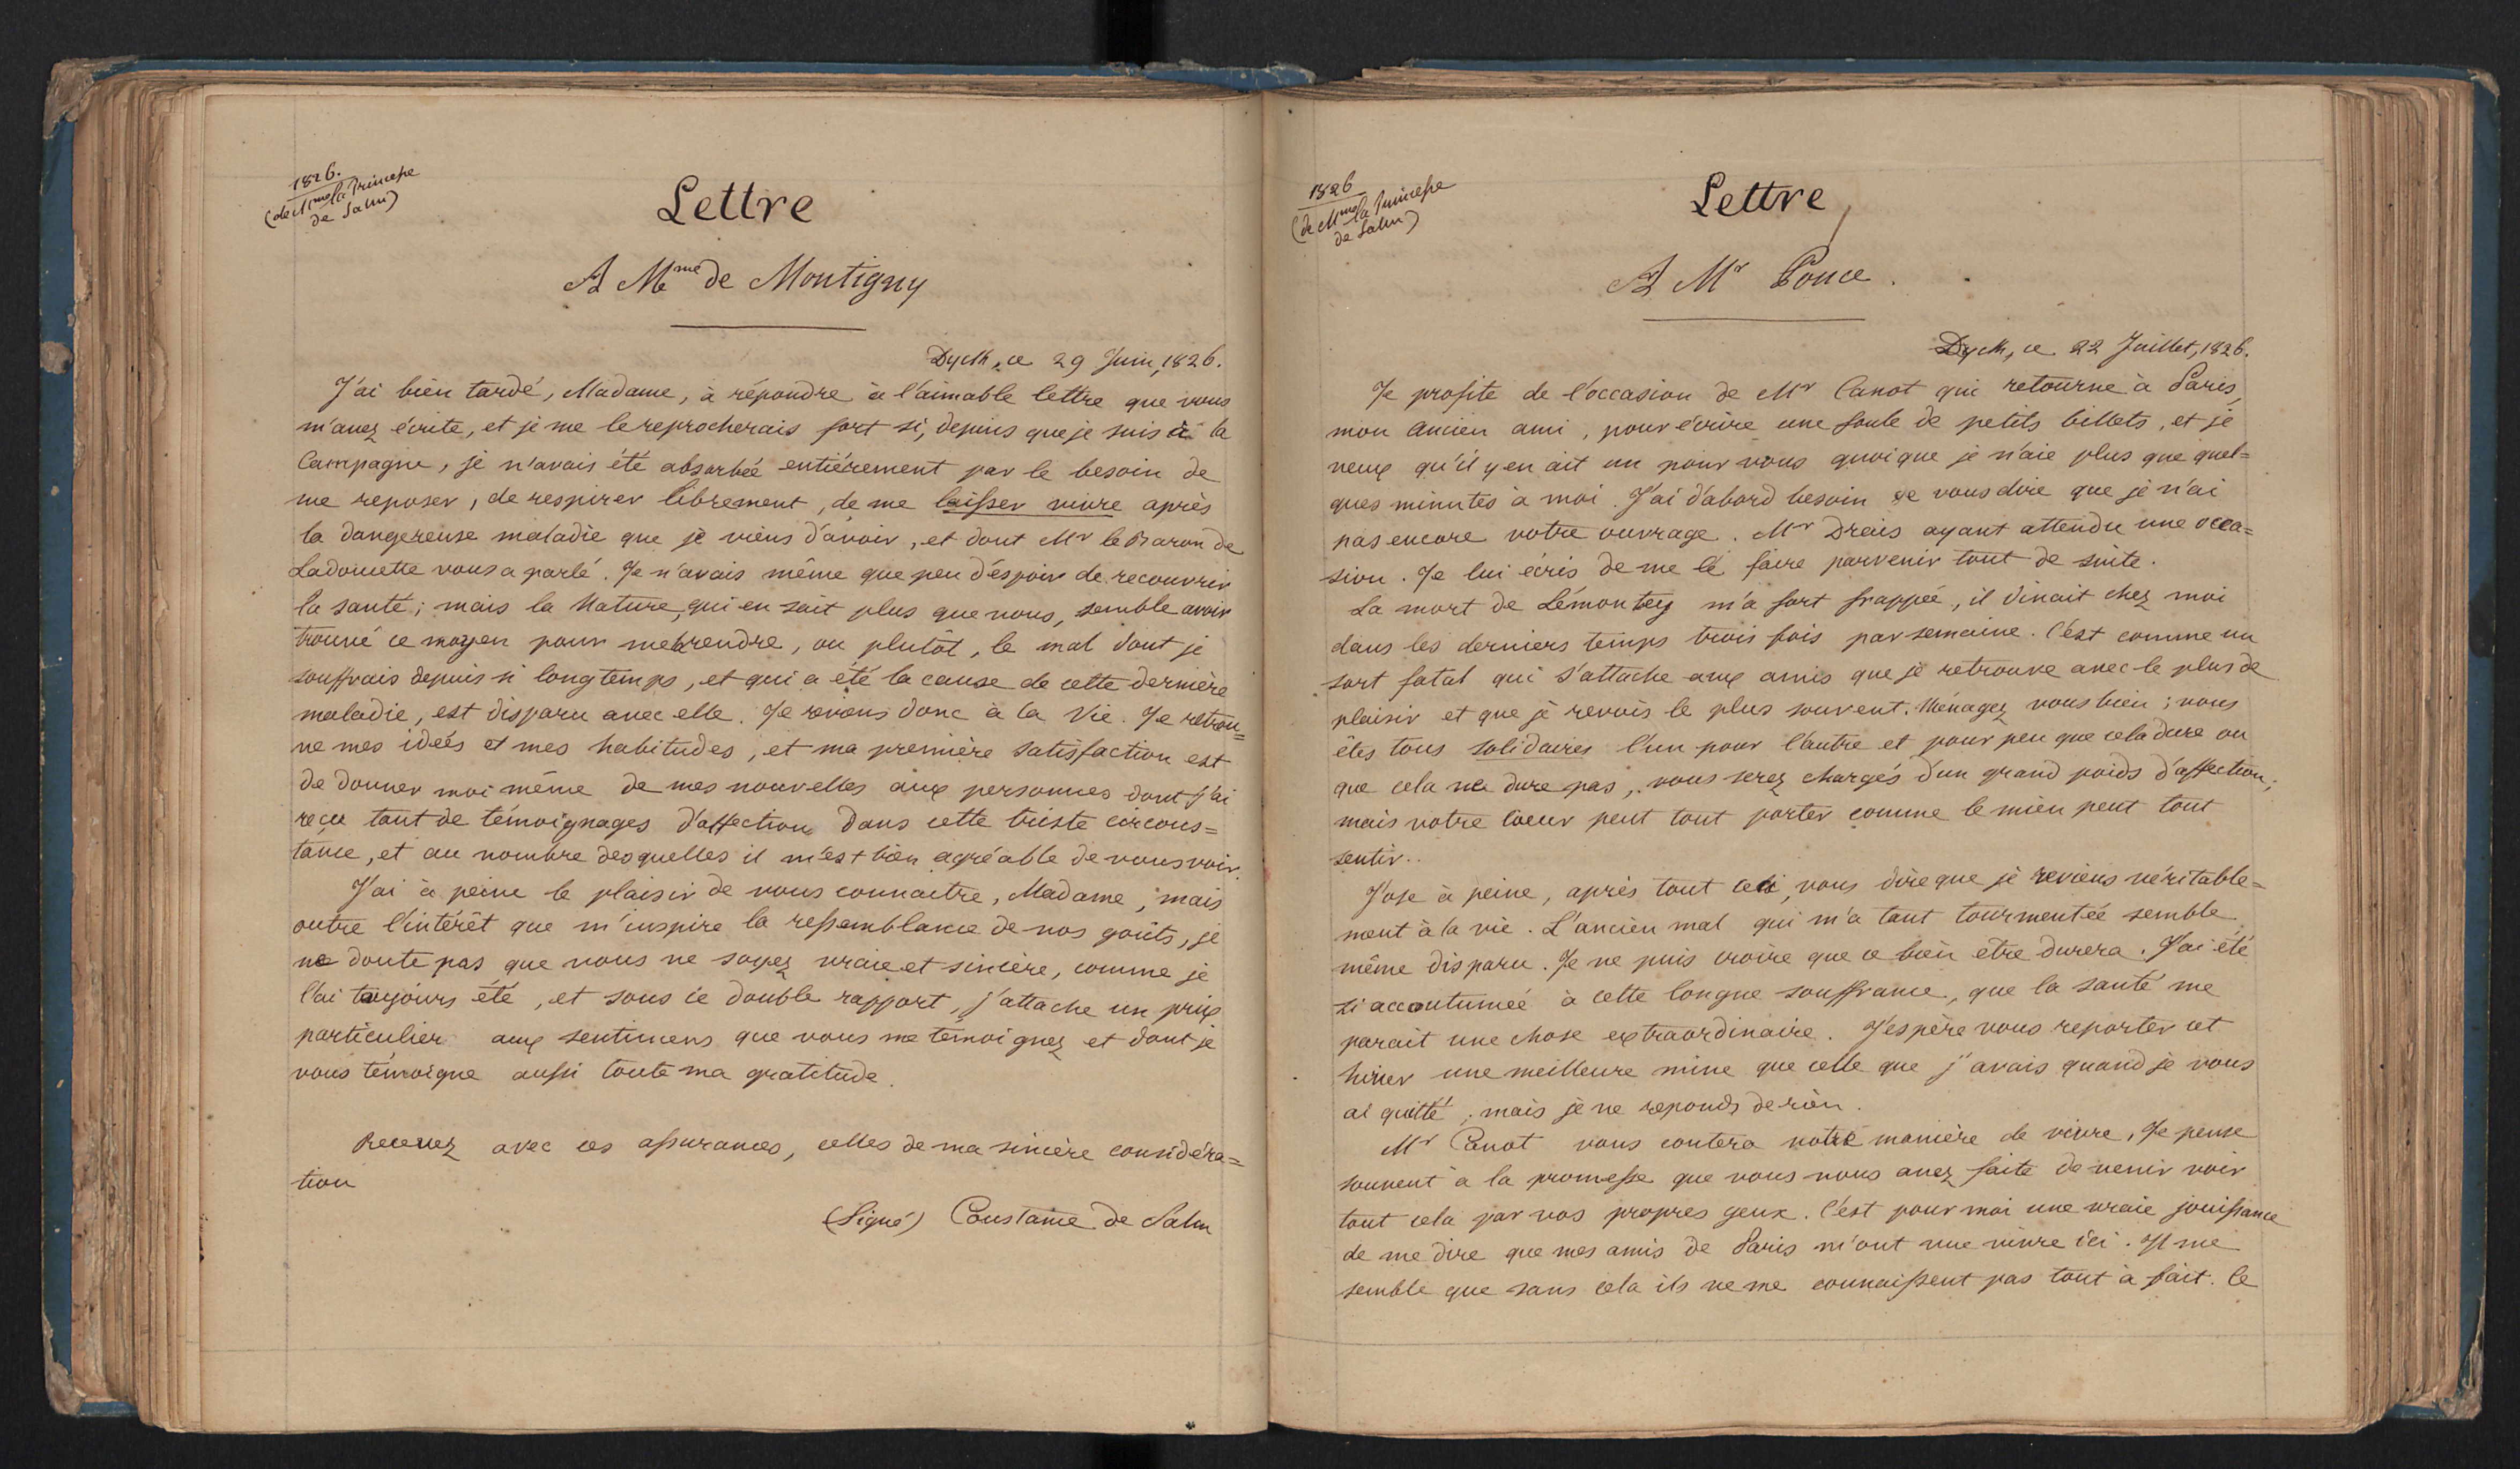 1826.
(de Mme la Princesse
de Salm)
Lettre
A Mme de Montigny
Dyck, ce 29 Juin, 1826.
J'ai bien tardé, Madame, à répondre à l'aimable lettre que vous
m'avez écrite, et je me le reprocherais fort si, depuis que je suis à la
Campagne, je n'avais été absorbée entièrement par le besoin de
me reposer, de respirer librement, de me laisser vivre après
la dangereuse maladie que je viens d'avoir, et dont Mr le Baron de
Ladoucette vous a parlé. Je n'avais même que peu d'espoir de recouvrir
la santé; mais la Nature, qui en sait plus que nous, semble avoir
trouvé ce moyen pour me la rendre, ou plutôt, le mal dont je
souffrais depuis si longtemps, et qui a été la cause de cette dernière
maladie, est disparu avec elle. Je reviens donc à la Vie. Je retrou=
ve mes idées et mes habitudes, et ma première satisfaction est
de donner moi même de mes nouvelles aux personnes dont j'ai
reçu tant de témoignages d'affection dans cette triste circons=
tance, et au nombre desquelles il m'est bien agréable de vous voir.
J'ai à peine le plaisir de vous connaitre, Madame, mais
outre l'intérêt que m'inspire la ressemblance de nos goûts, je
ne doute pas que vous ne soyez vraie et sincère, comme je
l'ai toujours été, et sous ce double rapport, j'attache un prix
particulier aux sentimens que vous me témoignez et dont je
vous témoigne aussi toute ma gratitude.
Recevez avec ces assurances, celles de ma sincère considéra=
tion
(Signé) Constance de Salm
1826
(de Mme la Princesse
de Salm)
Lettre
A Mr Ponce.
Dyck, ce 22 Juillet, 1826.
Je profite de l'occasion de Mr Canot qui retourne à Paris,
mon ancien ami, pour écrire une foule de petits billets, et je
veux qu'il y en ait un pour vous quoique je n'aie plus que quel=
ques minutes à moi. J'ai d'abord besoin de vous dire que je n'ai
pas encore votre ouvrage. Mr Drais ayant attendu une occa=
sion. Je lui écris de me le faire parvenir tout de suite.
La mort de Lémontey m'a fort frappée, il dinait chez moi
dans les derniers temps trois fois par semaine. C'est comme un
sort fatal qui s'attache aux amis que je retrouve avec le plus de
plaisir et que je revois le plus souvent. Ménagez vous bien; vous
êtes tous solidaires l'un pour l'autre et pour peu que cela dure ou
que cela ne dure pas, vous serez chargés d'un grand poids d'affection;
mais votre coeur peut tout porter comme le mien peut tout
sentir..
J'ose à peine, après tout ceci, vous dire que je reviens véritable=
ment à la vie. L'ancien mal qui m'a tant tourmentée semble
même disparu. Je ne puis croire que ce bien etre durera. J'ai été
si accoutumée à cette longue souffrance, que la santé me
parait une chose extraordinaire. J'espère vous reporter cet
hiver une meilleure mine que celle que j'avais quand je vous
ai quitté; mais je ne reponds de rien.
Mr Canot vous contera notre manière de vivre, Je pense
souvent à la promesse que vous nous avez faite de venir voir
tout cela par vos propres yeux. C'est pour moi une vraie jouissance
de me dire que mes amis de Paris m'ont vue vivre ici. Il me
semble que sans cela ils ne me connaissent pas tout à fait. Ce